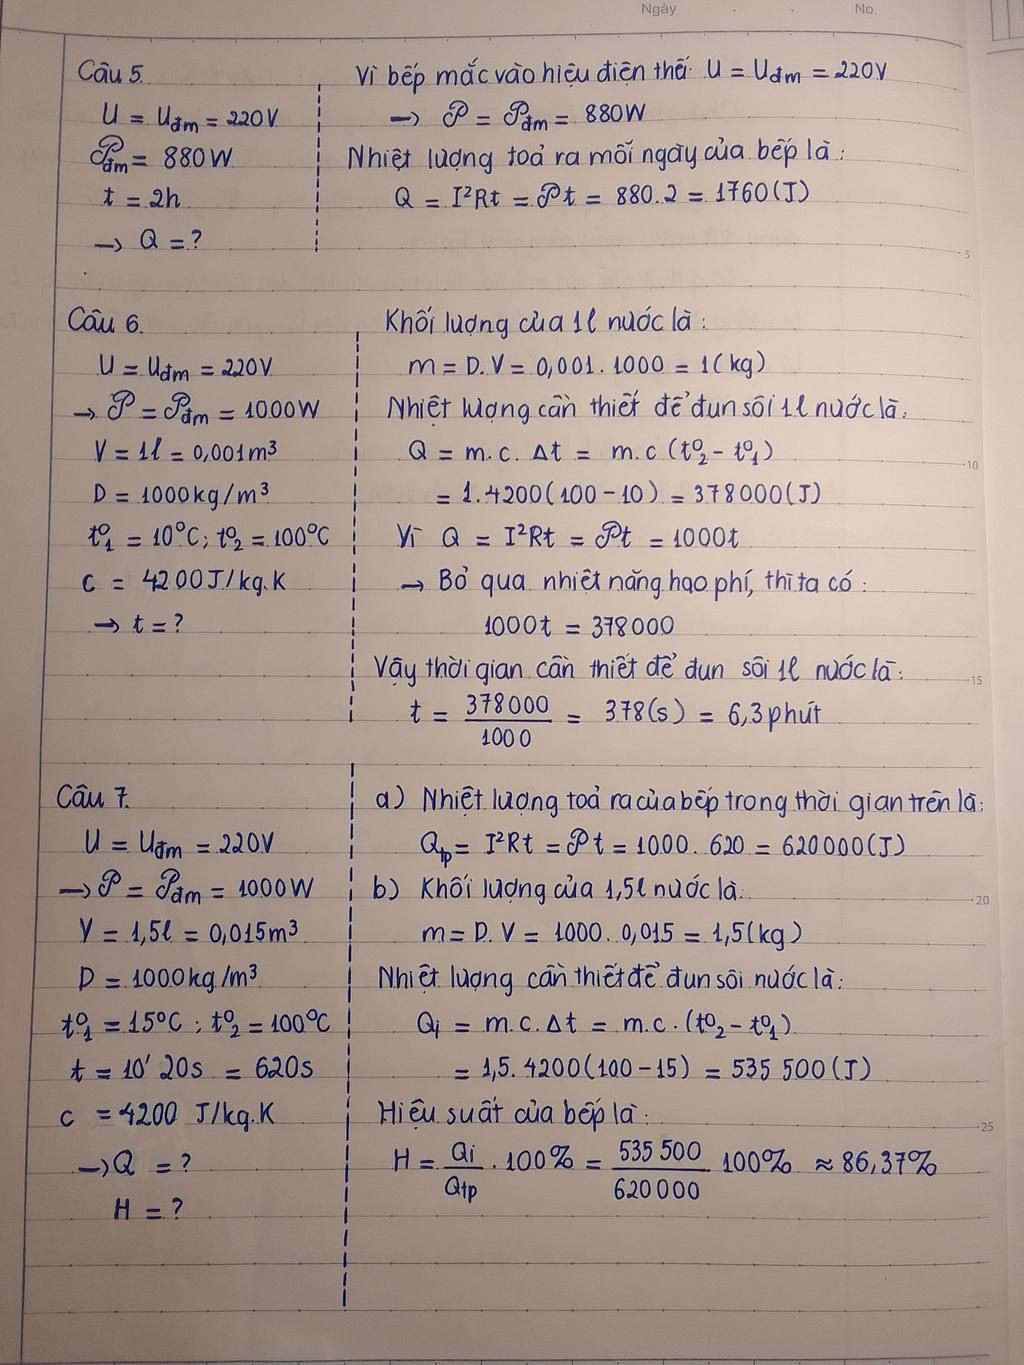 Ngày . . No.
Câu 5.
U = Uđm = 220V
𝒫đm = 880W
t = 2h
→ Q = ?
Vì bếp mắc vào hiệu điện thế: U = Uđm = 220V
→ 𝒫 = 𝒫đm = 880W
Nhiệt lượng toả ra mỗi ngày của bếp là:
Q = I²Rt = 𝒫t = 880.2 = 1760(J)
5
Câu 6.
U = Uđm = 220V
→ 𝒫 = 𝒫đm = 1000W
V = 1l = 0,001m³
D = 1000kg/m³
t°₁ = 10°C; t°₂ = 100°C
c = 4200J/kg.K
→ t = ?
Khối lượng của 1l nước là:
m = D.V = 0,001.1000 = 1(kg)
Nhiệt lượng cần thiết để đun sôi 1l nước là:
Q = m.c.Δt = m.c(t°₂ - t°₁)
10
= 1.4200(100-10) = 378000(J)
Vì Q = I²Rt = 𝒫t = 1000t
→ Bỏ qua nhiệt năng hao phí, thì ta có:
1000t = 378000
Vậy thời gian cần thiết để đun sôi 1l nước là:
15
t = 378000/1000 = 378(s) = 6,3 phút
Câu 7.
U = Uđm = 220V
→ 𝒫 = 𝒫đm = 1000W
V = 1,5l = 0,015m³
D = 1000kg/m³
t°₁ = 15°C; t°₂ = 100°C
t = 10' 20s = 620s
c = 4200 J/kg.K
→ Q = ?
H = ?
a) Nhiệt lượng toả ra của bếp trong thời gian trên là:
Qtp = I²Rt = 𝒫t = 1000.620 = 620000(J)
b) Khối lượng của 1,5l nước là:
20
m = D.V = 1000.0,015 = 1,5(kg)
Nhiệt lượng cần thiết để đun sôi nước là:
Qi = m.c.Δt = m.c.(t°₂ - t°₁)
= 1,5.4200(100-15) = 535 500(J)
Hiệu suất của bếp là:
25
H = Qi/Qtp . 100% = 535 500/620 000 100% ≈ 86,37%